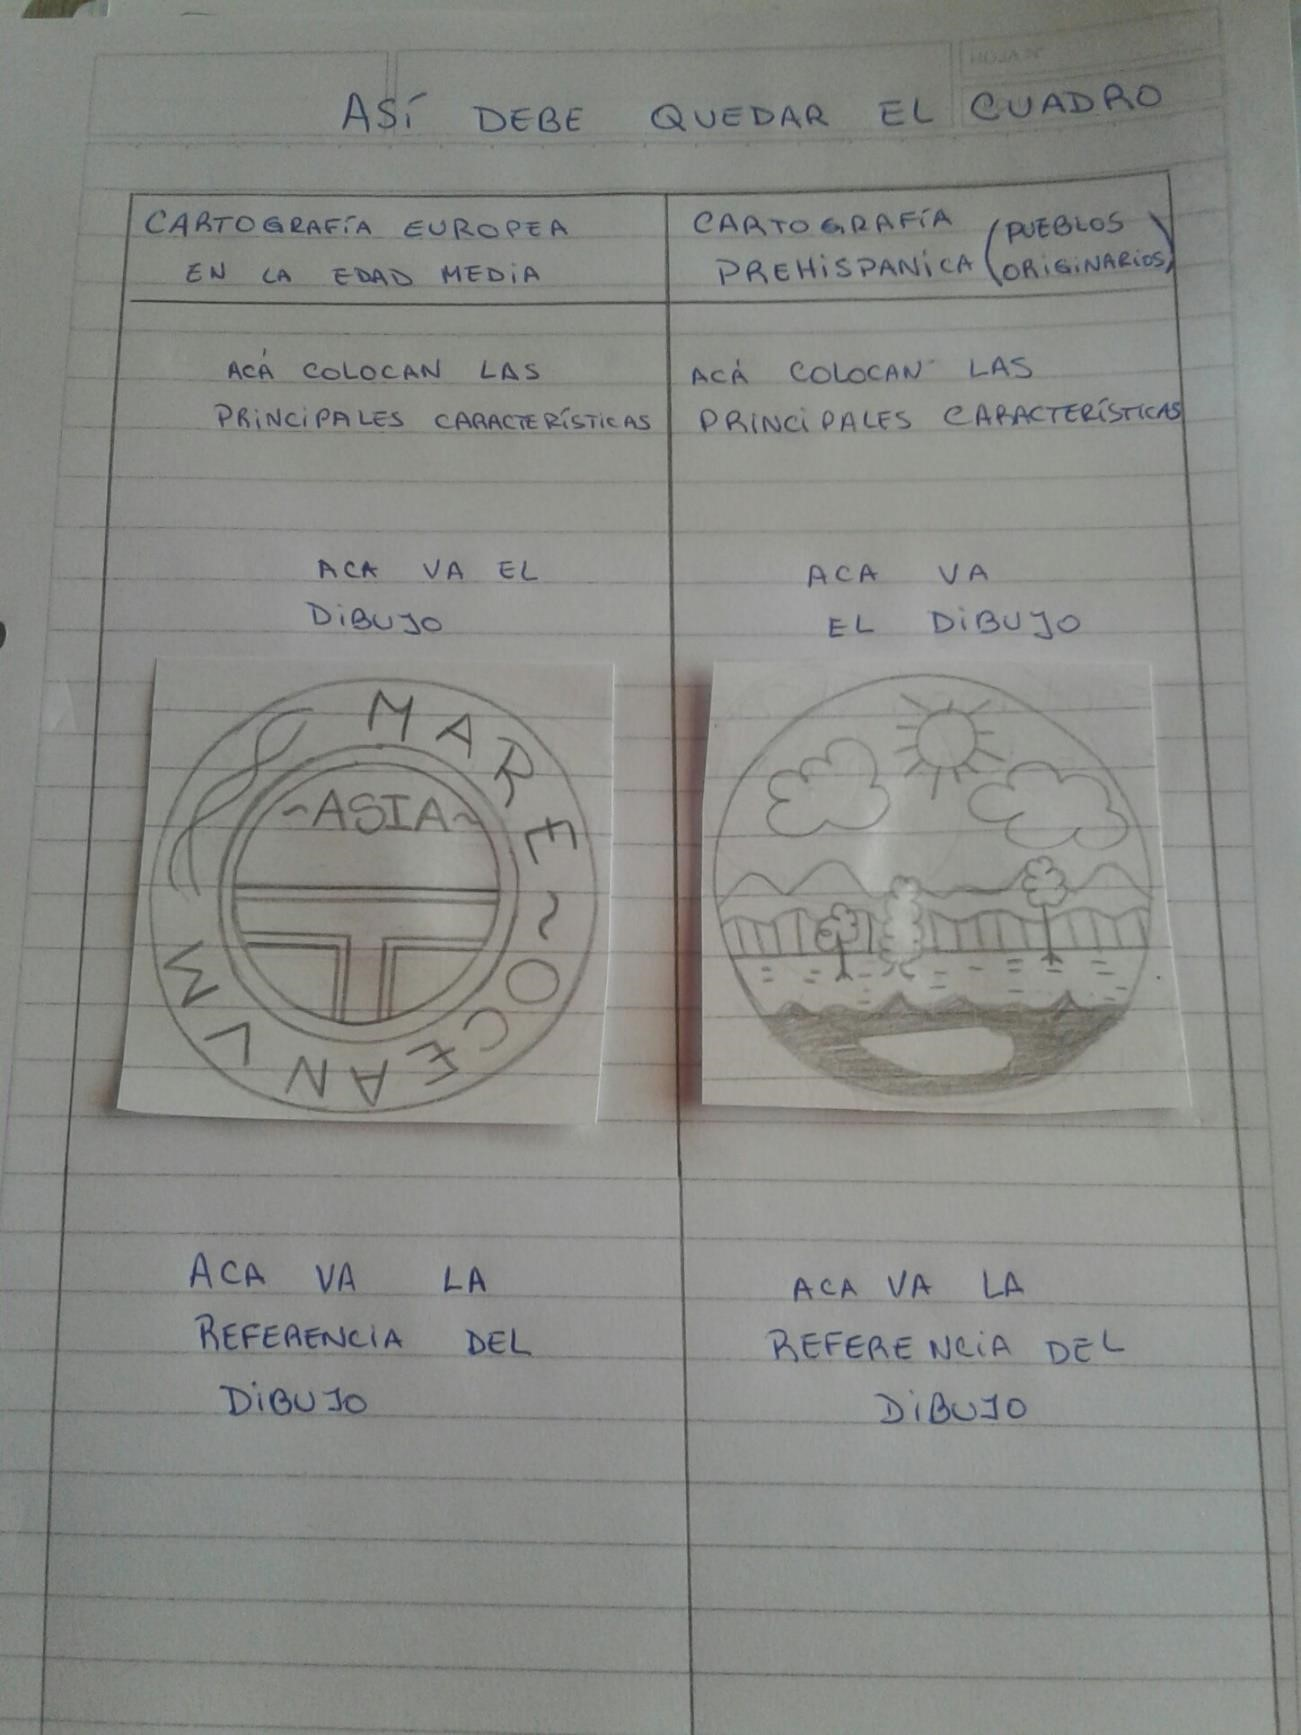 HOJA N°
ASÍ DEBE QUEDAR EL CUADRO
CARTOGRAFÍA EUROPEA
EN LA EDAD MEDIA
CARTOGRAFÍA
PREHISPANICA
(PUEBLOS
ORIGINARIOS)
ACÁ COLOCAN LAS
PRINCIPALES CARACTERÍSTICAS
ACÁ COLOCAN LAS
PRINCIPALES CARACTERÍSTICAS
ACA VA EL
DIBUJO
ACA VA
EL DIBUJO
MARE~OCEANVM
~ASIA~
ACA VA LA
REFERENCIA DEL
DIBUJO
ACA VA LA
REFERENCIA DEL
DIBUJO